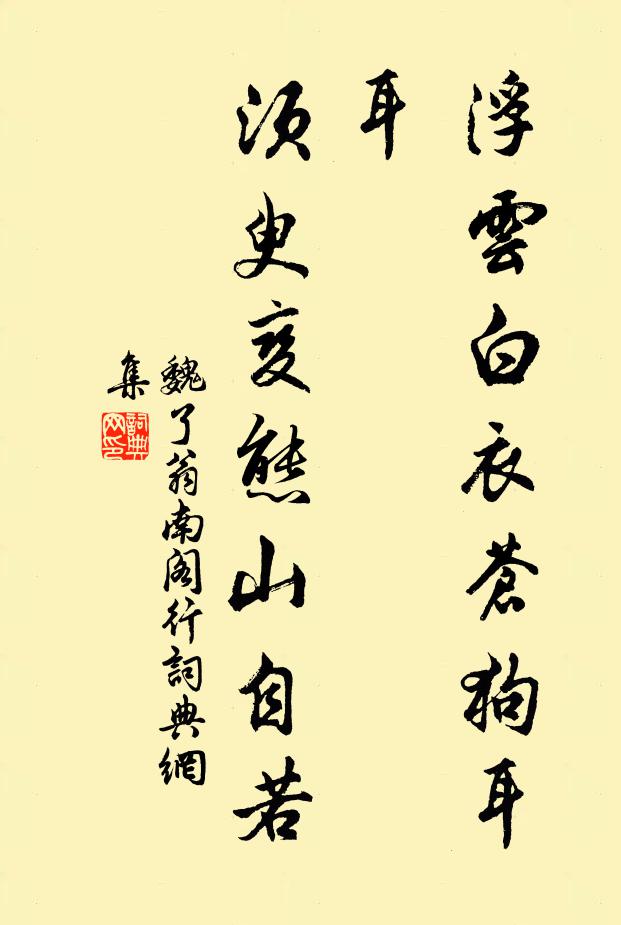 浮雲白衣蒼狗耳
耳
須臾變態山自若
魏了翁南閣行詞典網
集
詞典
网印